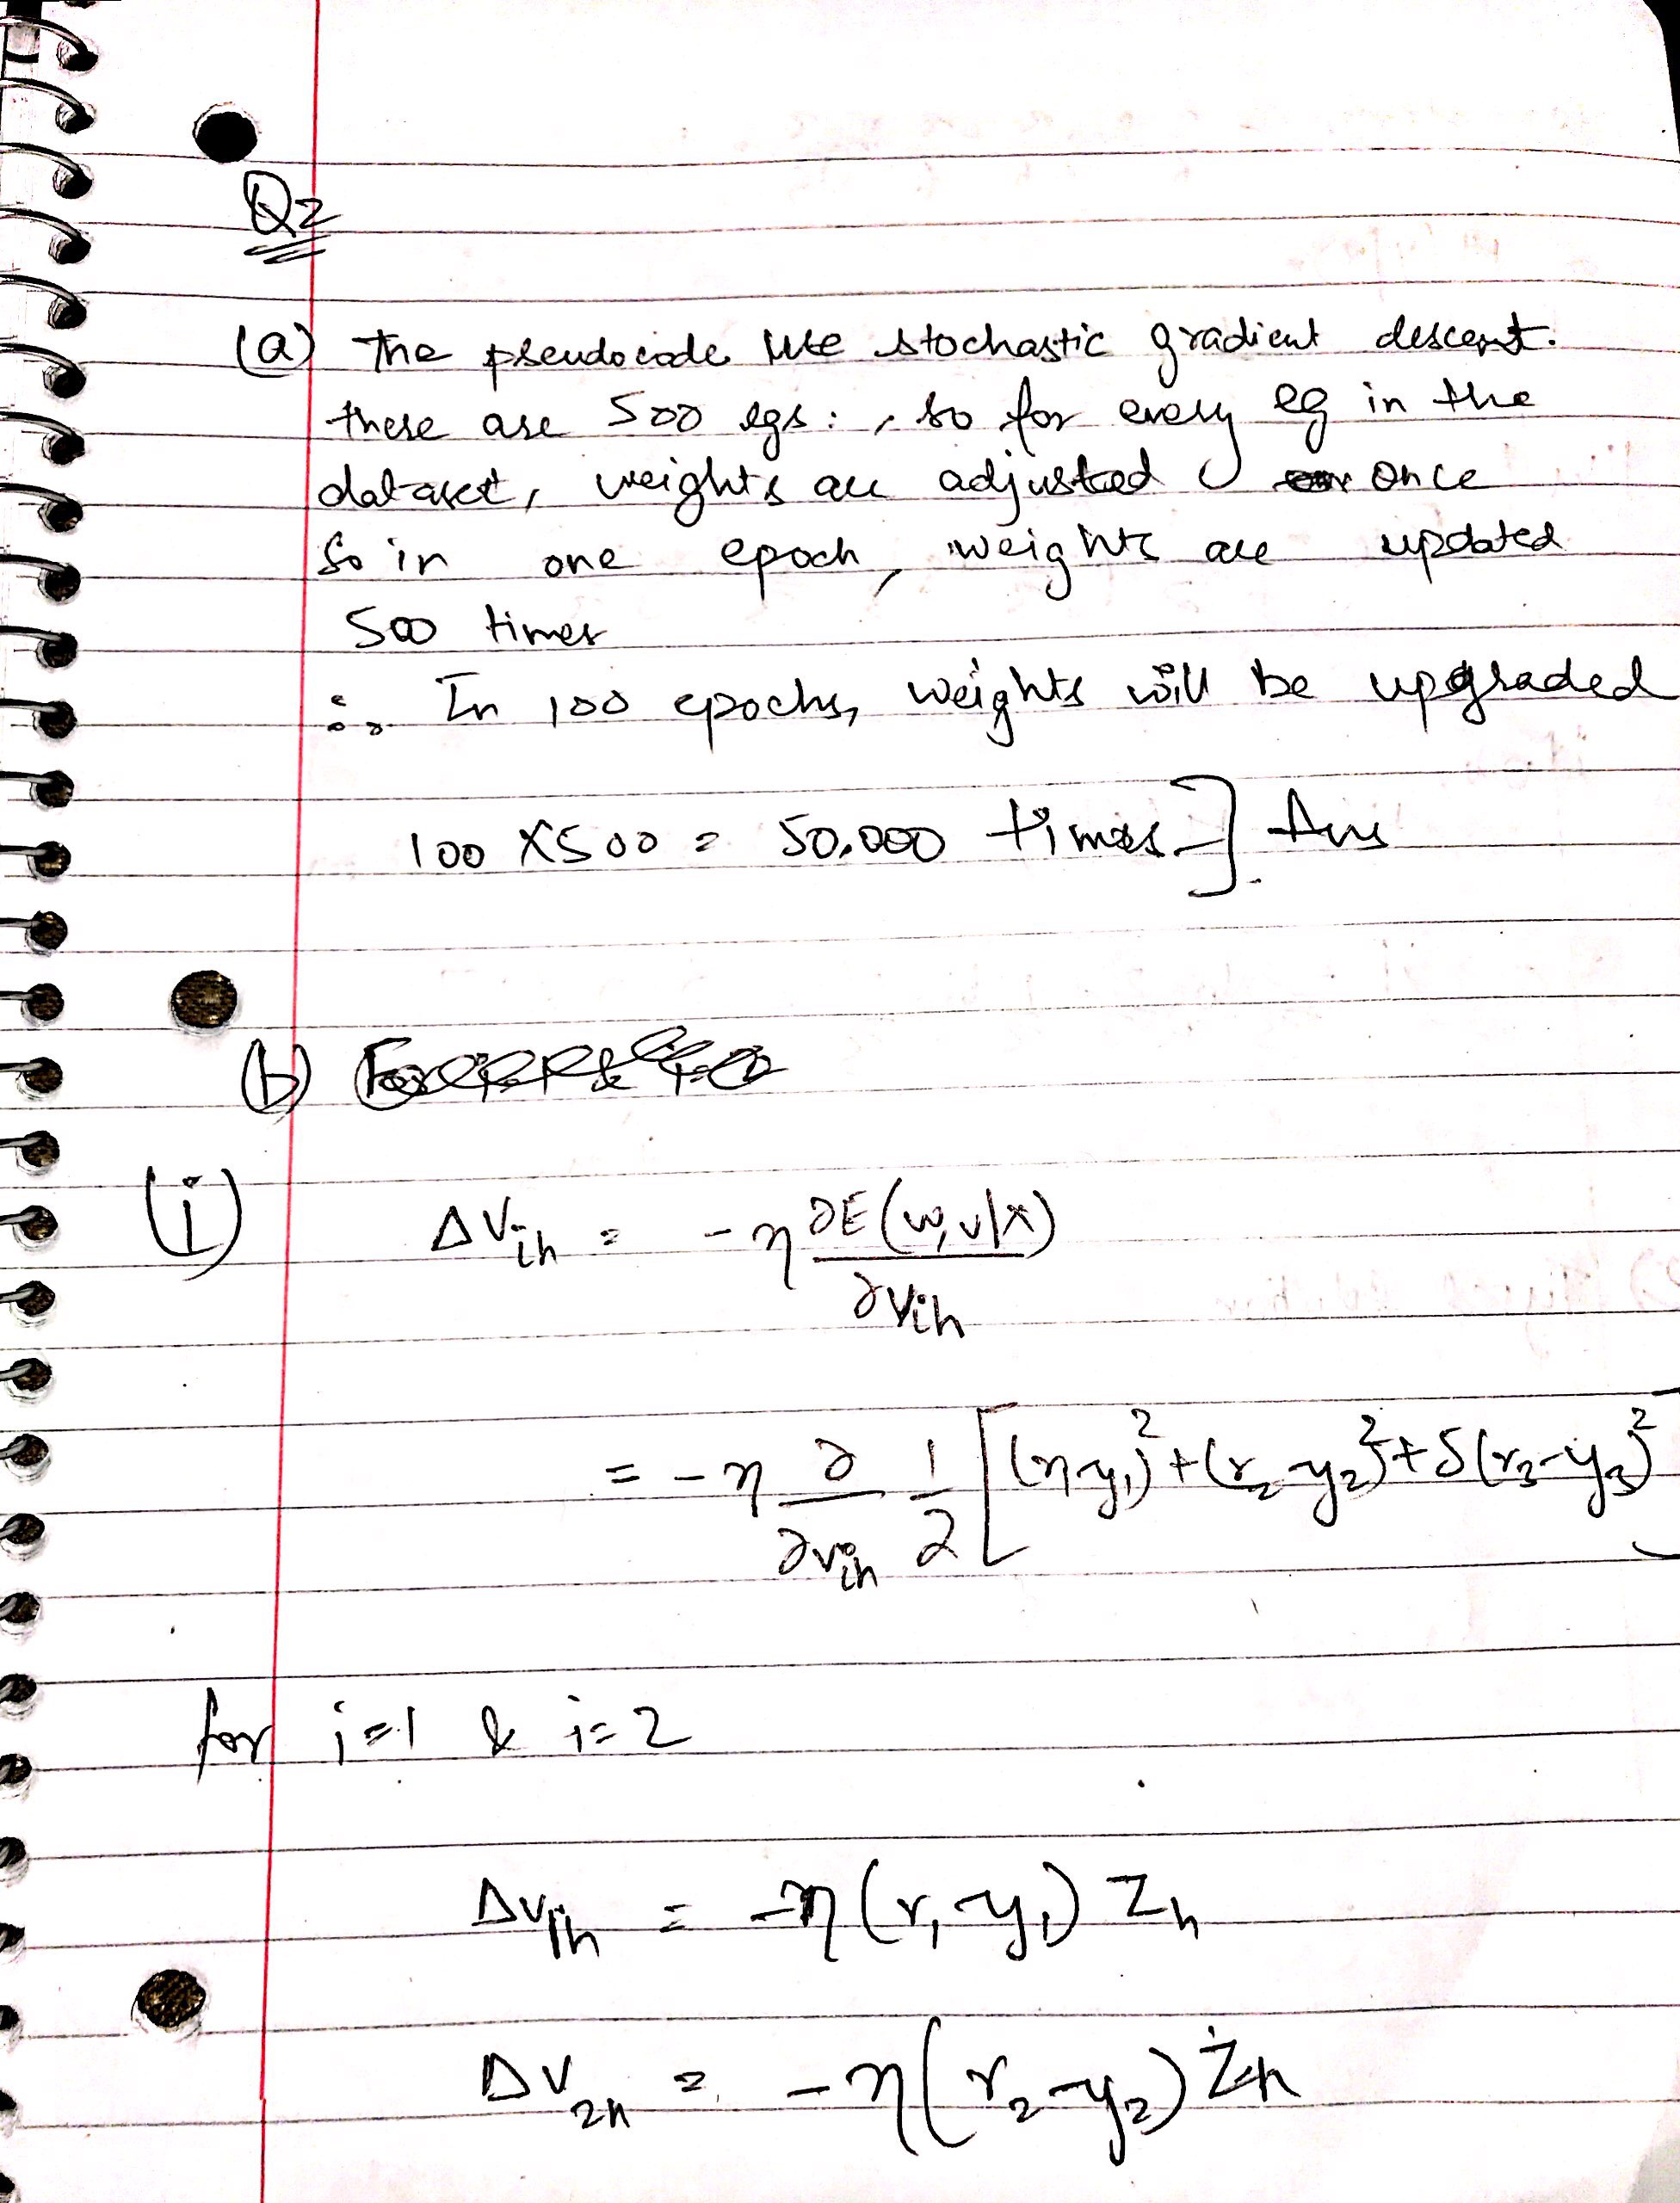 Q2
(a) The pseudocode use stochastic gradient descent.
there are 500 egs. , so for every eg in the
dataset, weights are adjusted once
So in one epoch, weights are updated
500 times
∴ In 100 epochs, weights will be upgraded
100 X 500 = 50,000 times ] Ans
(b)
(i) ΔV_ih = -η ∂E(w,v|x) / ∂v_ih
= -η ∂/∂v_ih 1/2 [(r_1-y_1)^2 + (r_2-y_2)^2 + 5(r_3-y_3)^2]
for i=1 & i=2
Δv_1h = -η (r_1-y_1) Z_h
ΔV_2h = -η (r_2-y_2) Z_h